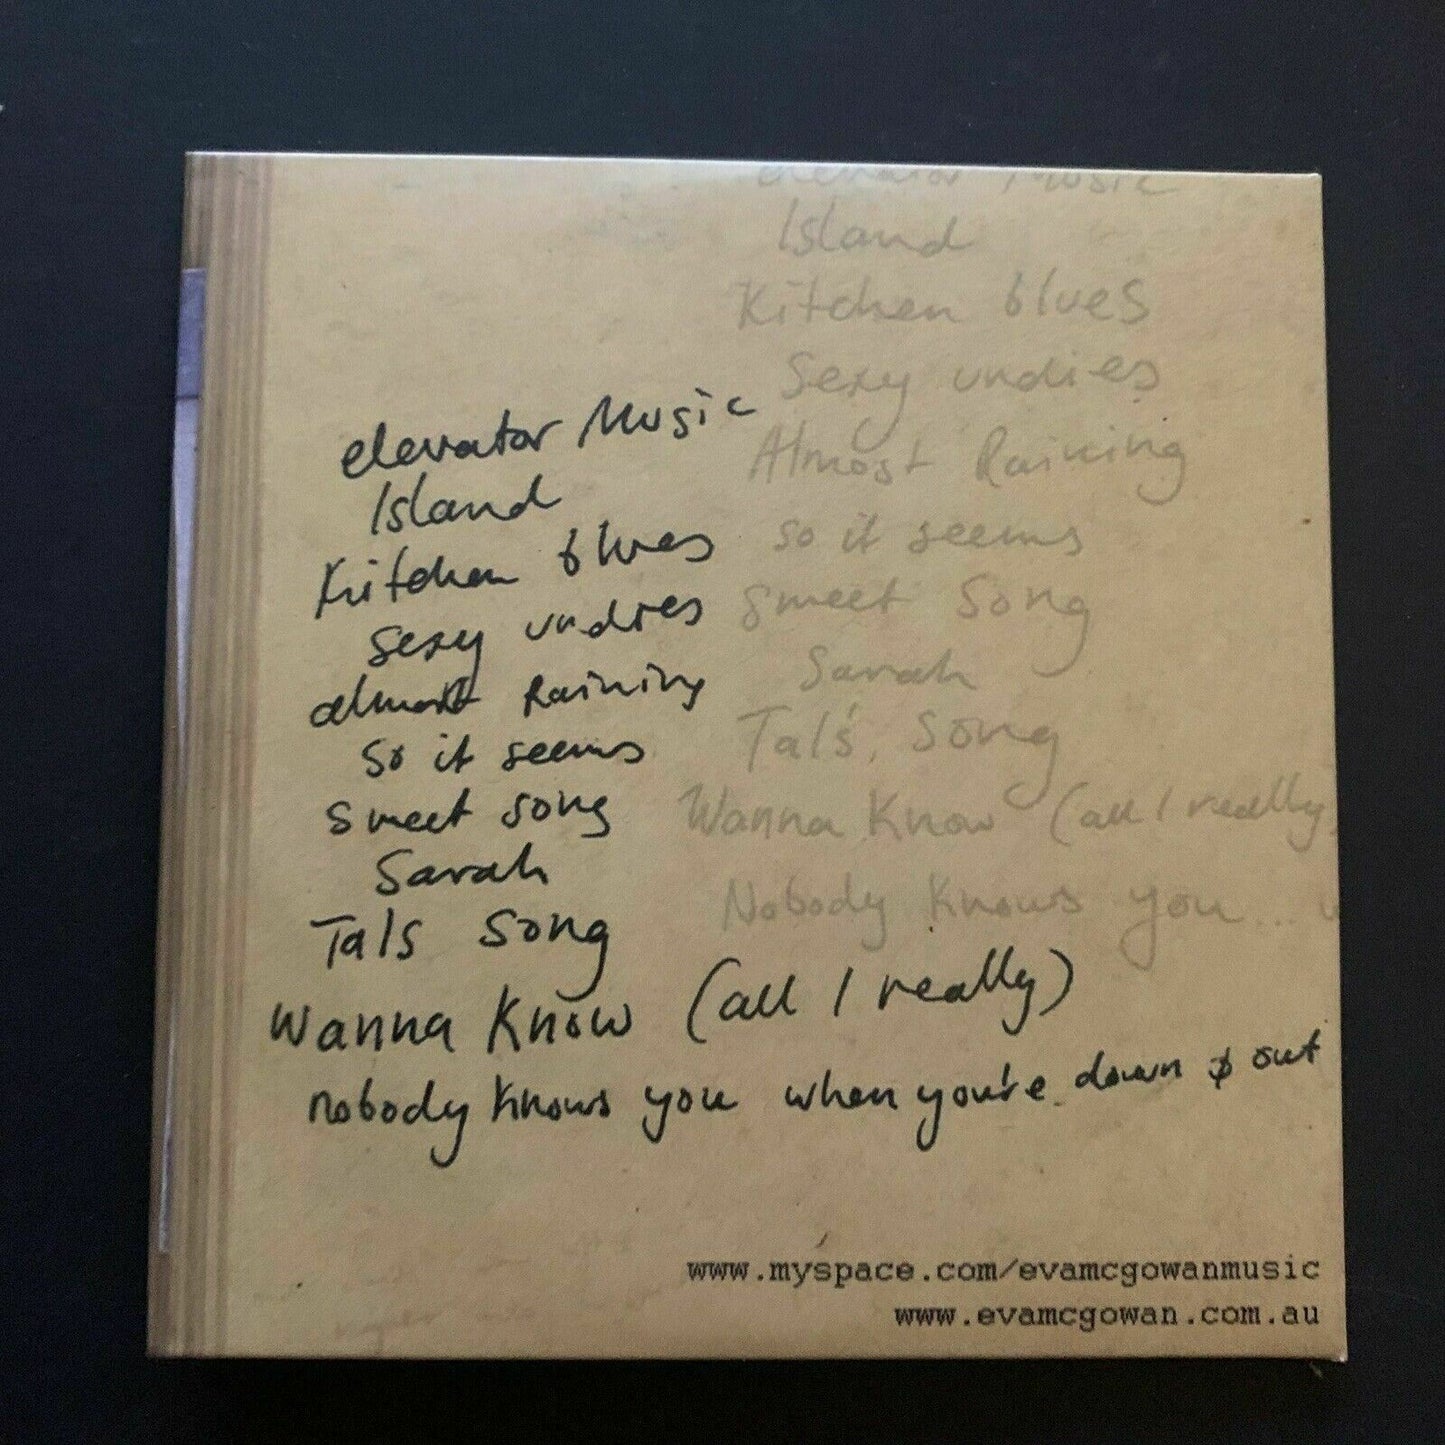 elevator Music
Island
Kitchen blues
Sexy undies
Almost Raining
so it seems
Sweet Song
Sarah
Tal's Song
Wanna Know (all I really
Nobody Knows you ..
elevator Music
Island
Kitchen blues
Sexy undies
almost Raining
so it seems
Sweet song
Sarah
Tal's Song
Wanna Know (all I really)
nobody knows you when you're down & out
www.myspace.com/evamcgowanmusic
www.evamcgowan.com.au